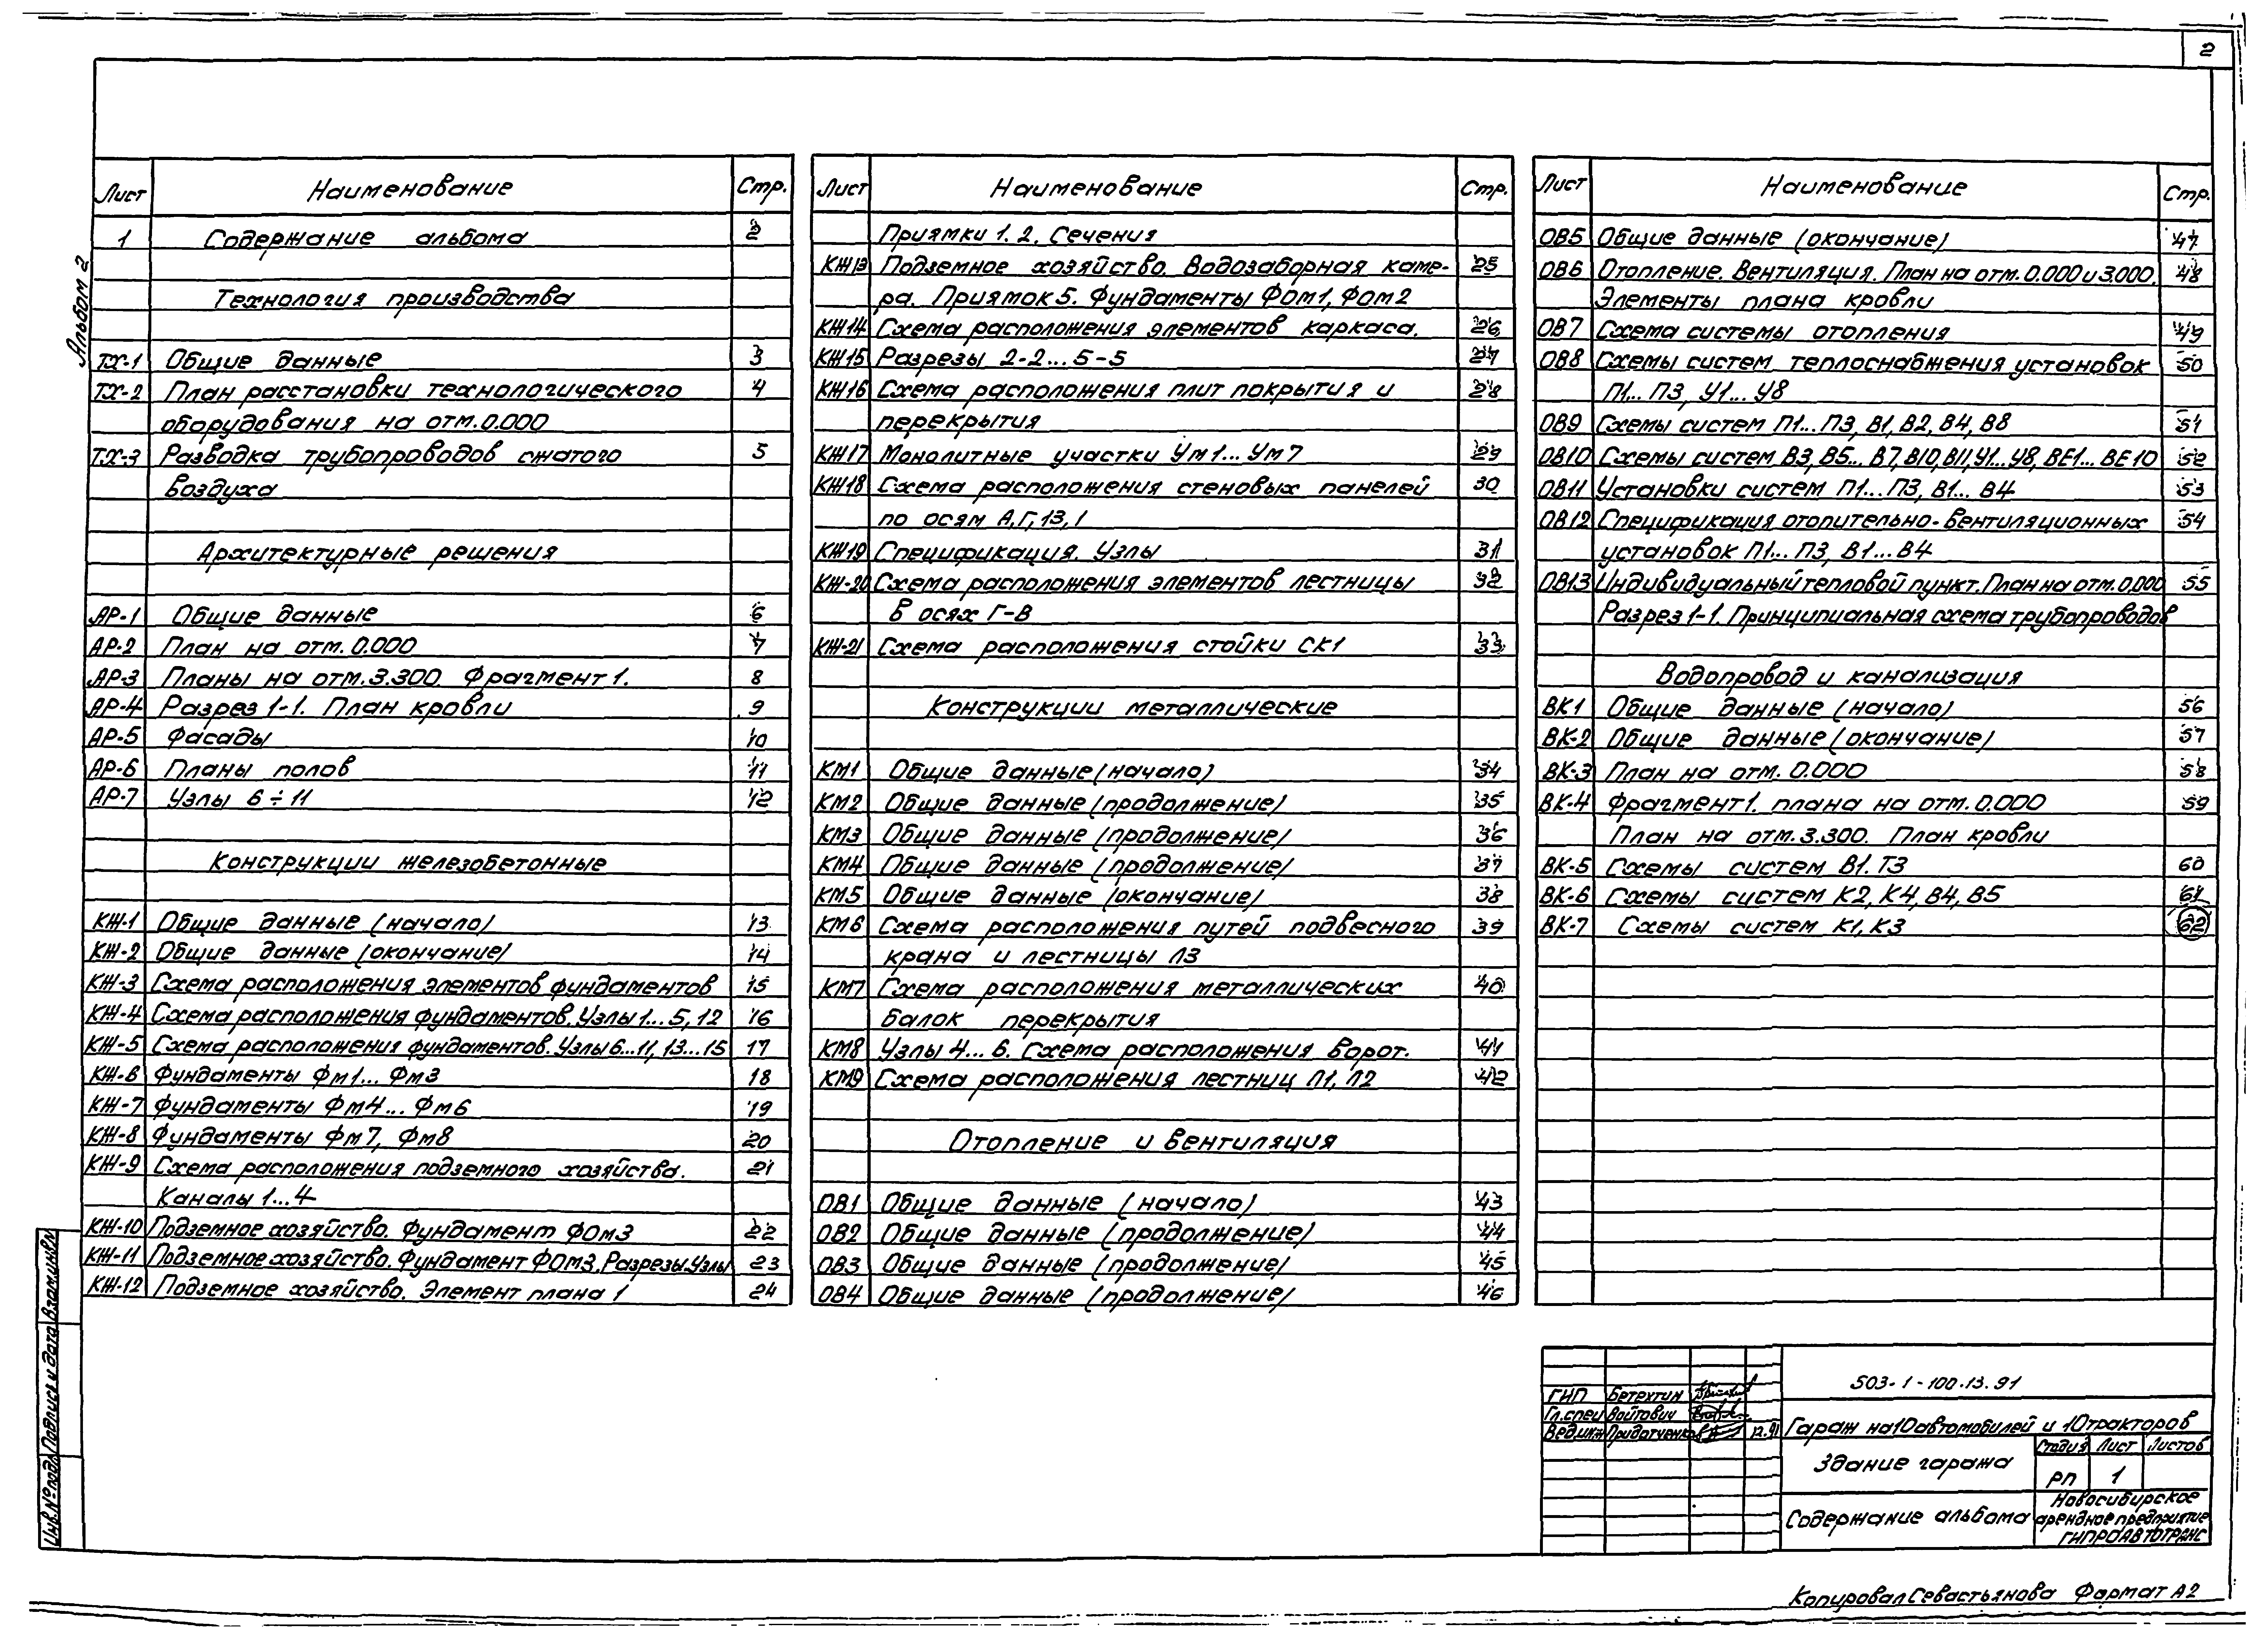 2
Альбом 2
Лист Наименование Стр.
1 Содержание альбома 2
Технология производства
ТХ-1 Общие данные 3
ТХ-2 План расстановки технологического 4
оборудования на отм.0.000
ТХ-3 Разводка трубопроводов сжатого 5
воздуха
Архитектурные решения
АР-1 Общие данные 6
АР-2 План на отм.0.000 7
АР-3 Планы на отм.3.300. Фрагмент 1. 8
АР-4 Разрез 1-1. План кровли 9
АР-5 Фасады 10
АР-6 Планы полов 11
АР-7 Узлы 6÷11 12
Конструкции железобетонные
КЖ-1 Общие данные (начало) 13
КЖ-2 Общие данные (окончание) 14
КЖ-3 Схема расположения элементов фундаментов 15
КЖ-4 Схема расположения фундаментов. Узлы 1...5, 12 16
КЖ-5 Схема расположения фундаментов. Узлы 6...11, 13...15 17
КЖ-6 Фундаменты Фм1... Фм3 18
КЖ-7 Фундаменты Фм4... Фм6 19
КЖ-8 Фундаменты Фм7, Фм8 20
КЖ-9 Схема расположения подземного хозяйства. 21
Каналы 1...4
КЖ-10 Подземное хозяйство. Фундамент ФОм3 22
КЖ-11 Подземное хозяйство. Фундамент ФОм3. Разрезы. Узлы 23
КЖ-12 Подземное хозяйство. Элемент плана 1 24
Лист Наименование Стр.
Приямки 1. 2. Сечения
КЖ13 Подземное хозяйство. Водозаборная каме- 25
ра. Приямок 5. Фундаменты ФОм1, ФОм2
КЖ14 Схема расположения элементов каркаса. 26
КЖ15 Разрезы 2-2...5-5 27
КЖ16 Схема расположения плит покрытия и 28
перекрытия
КЖ17 Монолитные участки Ум1... Ум7 29
КЖ18 Схема расположения стеновых панелей 30
по осям А,Г,13,1
КЖ19 Спецификация. Узлы 31
КЖ-20 Схема расположения элементов лестницы 32
в осях Г-В
КЖ-21 Схема расположения стойки СК1 33
Конструкции металлические
КМ1 Общие данные (начало) 34
КМ2 Общие данные (продолжение) 35
КМ3 Общие данные (продолжение) 36
КМ4 Общие данные (продолжение) 37
КМ5 Общие данные (окончание) 38
КМ6 Схема расположения путей подвесного 39
крана и лестницы Л3
КМ7 Схема расположения металлических 40
балок перекрытия
КМ8 Узлы 4... 6. Схема расположения ворот. 41
КМ9 Схема расположения лестниц Л1, Л2 42
Отопление и вентиляция
ОВ1 Общие данные (начало) 43
ОВ2 Общие данные (продолжение) 44
ОВ3 Общие данные (продолжение) 45
ОВ4 Общие данные (продолжение) 46
Лист Наименование Стр.
ОВ5 Общие данные (окончание) 47
ОВ6 Отопление. Вентиляция. План на отм. 0.000 и 3.000. 48
Элементы плана кровли
ОВ7 Схема системы отопления 49
ОВ8 Схемы систем теплоснабжения установок 50
П1... П3, У1... У8
ОВ9 Схемы систем П1... П3, В1, В2, В4, В8 51
ОВ10 Схемы систем В3, В5... В7, В10, В11, У1... У8, ВЕ1... ВЕ10 52
ОВ11 Установки систем П1... П3, В1... В4 53
ОВ12 Спецификация отопительно-вентиляционных 54
установок П1... П3, В1... В4
ОВ13 Индивидуальный тепловой пункт. План на отм. 0.000 55
Разрез 1-1. Принципиальная схема трубопроводов
Водопровод и канализация
ВК1 Общие данные (начало) 56
ВК-2 Общие данные (окончание) 57
ВК-3 План на отм. 0.000 58
ВК-4 Фрагмент 1. плана на отм. 0.000 59
План на отм. 3.300. План кровли
ВК-5 Схемы систем В1. Т3 60
ВК-6 Схемы систем К2, К4, В4, В5 61
ВК-7 Схемы систем К1, К3 62
Инв.№ подл. Подпись и дата Взам.инв.№
503-1-100.13.91
ГИП Бетехтин
Гл.спец Войтович
Вед.инж Придатченко 12.91
Гараж на 10 автомобилей и 10 тракторов
Здание гаража
Стадия Лист Листов
РП 1
Содержание альбома
Новосибирское
арендное предприятие
ГИПРОАВТОТРАНС
Копировал Севастьянова Формат А2